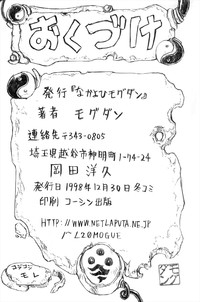 おくづけ
発行『なかよひモグダン』
著者 モグダン
連絡先〒343-0805
埼玉県越谷市神明町1-74-24
岡田洋久
発行日1998年12月30日冬コミ
印刷 コーシン出版
HTTP://WWW.NETLAPUTA.NE.JP
/~L20MOGUE
モレ